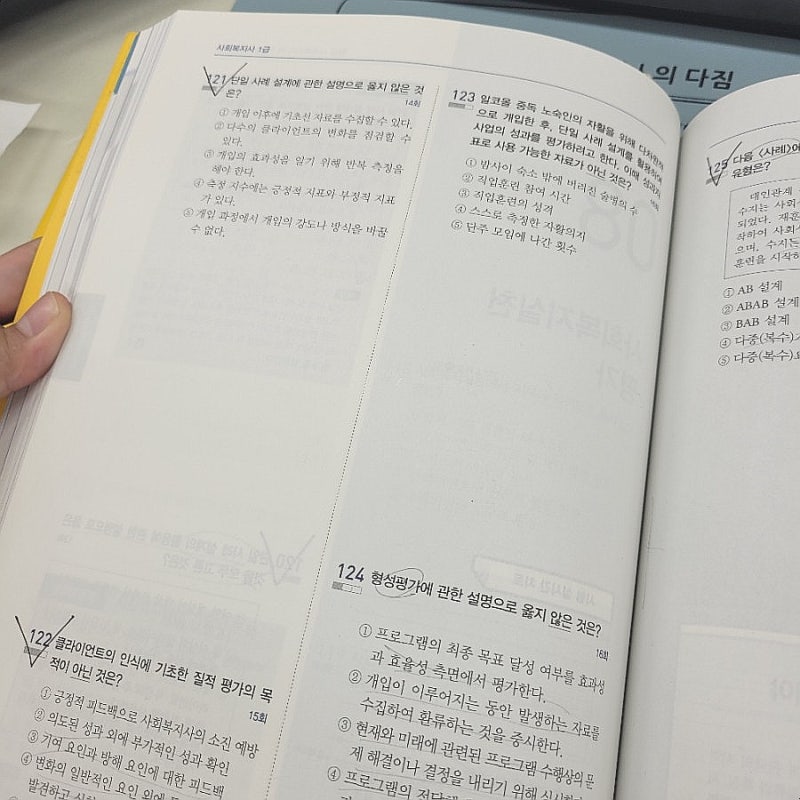 사회복지사 1급
121 단일 사례 설계에 관한 설명으로 옳지 않은 것
은?
14회
① 개입 이후에 기초선 자료를 수집할 수 있다.
② 다수의 클라이언트의 변화를 점검할 수
있다.
③ 개입의 효과성을 알기 위해 반복 측정을
해야 한다.
④ 측정 지수에는 긍정적 지표와 부정적 지표
가 있다.
⑤ 개입 과정에서 개입의 강도나 방식을 바꿀
수 없다.
122 클라이언트의 인식에 기초한 질적 평가의 목
적이 아닌 것은?
15회
① 긍정적 피드백으로 사회복지사의 소진 예방
② 의도된 성과 외에 부가적인 성과 확인
③ 기여 요인과 방해 요인에 대한 피드백
④ 변화의 일반적인 요인 외에
발견하고
123 알코올 중독 노숙인의 자활을 위해 다차원적
으로 개입한 후, 단일 사례 설계를 활용하여
사업의 성과를 평가하려고 한다. 이때 성과지
표로 사용 가능한 자료가 아닌 것은?
① 밤사이 숙소 밖에 버려진 술병의 수
② 직업훈련 참여 시간
③ 직업훈련의 성격
④ 스스로 측정한 자활의지
⑤ 단주 모임에 나간 횟수
124 형성평가에 관한 설명으로 옳지 않은 것은?
16회
① 프로그램의 최종 목표 달성 여부를 효과성
과 효율성 측면에서 평가한다.
② 개입이 이루어지는 동안 발생하는 자료를
수집하여 환류하는 것을 중시한다.
③ 현재와 미래에 관련된 프로그램 수행상의 문
제 해결이나 결정을 내리기 위해
④ 프로그램의
의 다짐
125 다음 〈사례〉에
유형은?
대인관계
수지는 사회
되었다.
작하여 사회
으며, 수지는
훈련을 시작하
① AB 설계
② ABAB 설계
③ BAB 설계
④ 다중(복수)
⑤ 다중(복수)